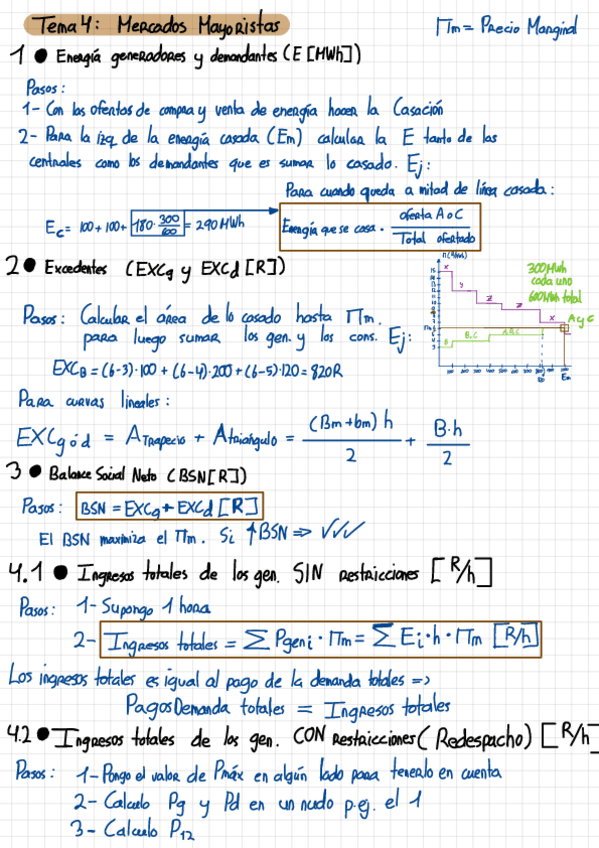 Tema 4: Mercados Mayoristas
Πm = Precio Marginal
1 ● Energía generadores y demandantes (E [MWh])
Pasos:
1- Con las ofertas de compra y venta de energía hacer la Casación
2- Para la izq de la energía casada (Em) calcular la E tanto de las
centrales como los demandantes que es sumar lo casado. Ej:
Para cuando queda a mitad de línea casada:
Ec = 100 + 100 + 180 · 300/600 = 290 MWh
Energía que se casa · oferta A o C / Total ofertado
2 ● Excedentes (EXCg y EXCd [R])
Pasos: Calcular el área de lo casado hasta Πm,
para luego sumar los gen. y los cons. Ej:
300 Mwh
cada uno
600 Mwh total
A y C
x
y
z
z
x
B
B,C
Em
EXCB = (6-3)·100 + (6-4)·200 + (6-5)·120 = 820R
Para curvas lineales:
EXCg ó d = ATrapecio + Atriángulo = (Bm + bm) h / 2 + B·h / 2
3 ● Balance Social Neto (BSN [R])
Pasos: BSN = EXCg + EXCd [R]
El BSN maximiza el Πm. Si ↑BSN => ✓✓✓
4.1 ● Ingresos totales de los gen. SIN restricciones [R/h]
Pasos: 1- Supongo 1 hora
2- Ingresos totales = ∑ Pgeni · Πm = ∑ Ei · h · Πm [R/h]
Los ingresos totales es igual al pago de la demanda totales =>
Pagos Demanda totales = Ingresos totales
4.2 ● Ingresos totales de los gen. CON restricciones (Redespacho) [R/h]
Pasos: 1- Pongo el valor de Pmáx en algún lado para tenerlo en cuenta
2- Calculo Pg y Pd en un nudo p.ej. el 1
3- Calculo P12